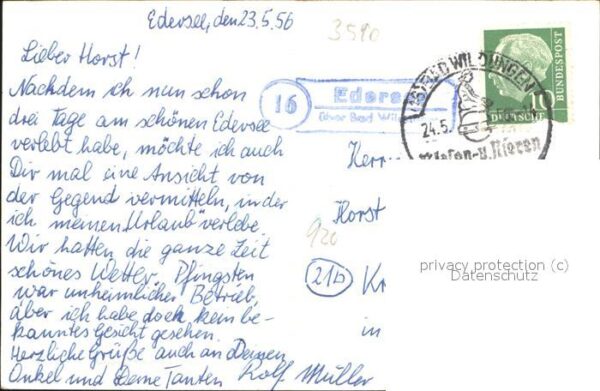 Edersee, den 23.5.56
3590
Lieber Horst!
Nachdem ich nun schon
drei Tage am schönen Edersee
verlebt habe, möchte ich auch
Dir mal eine Ansicht von
der Gegend vermitteln, in der
ich meinen "Urlaub" verlebe.
Wir hatten die ganze Zeit
schönes Wetter. Pfingsten
war unheimlicher Betrieb,
aber ich habe doch kein be-
kanntes Gesicht gesehen.
Herzliche Grüße auch an Deinen
Onkel und Deine Tanten Rolf Müller
16
Eders
über Bad Wil
BAD WILDUNGEN
24.5.
u. Nieren
10
DEUTSCHE
BUNDESPOST
Herr
Horst
920
21b
Kr
in
privacy protection (c)
Datenschutz